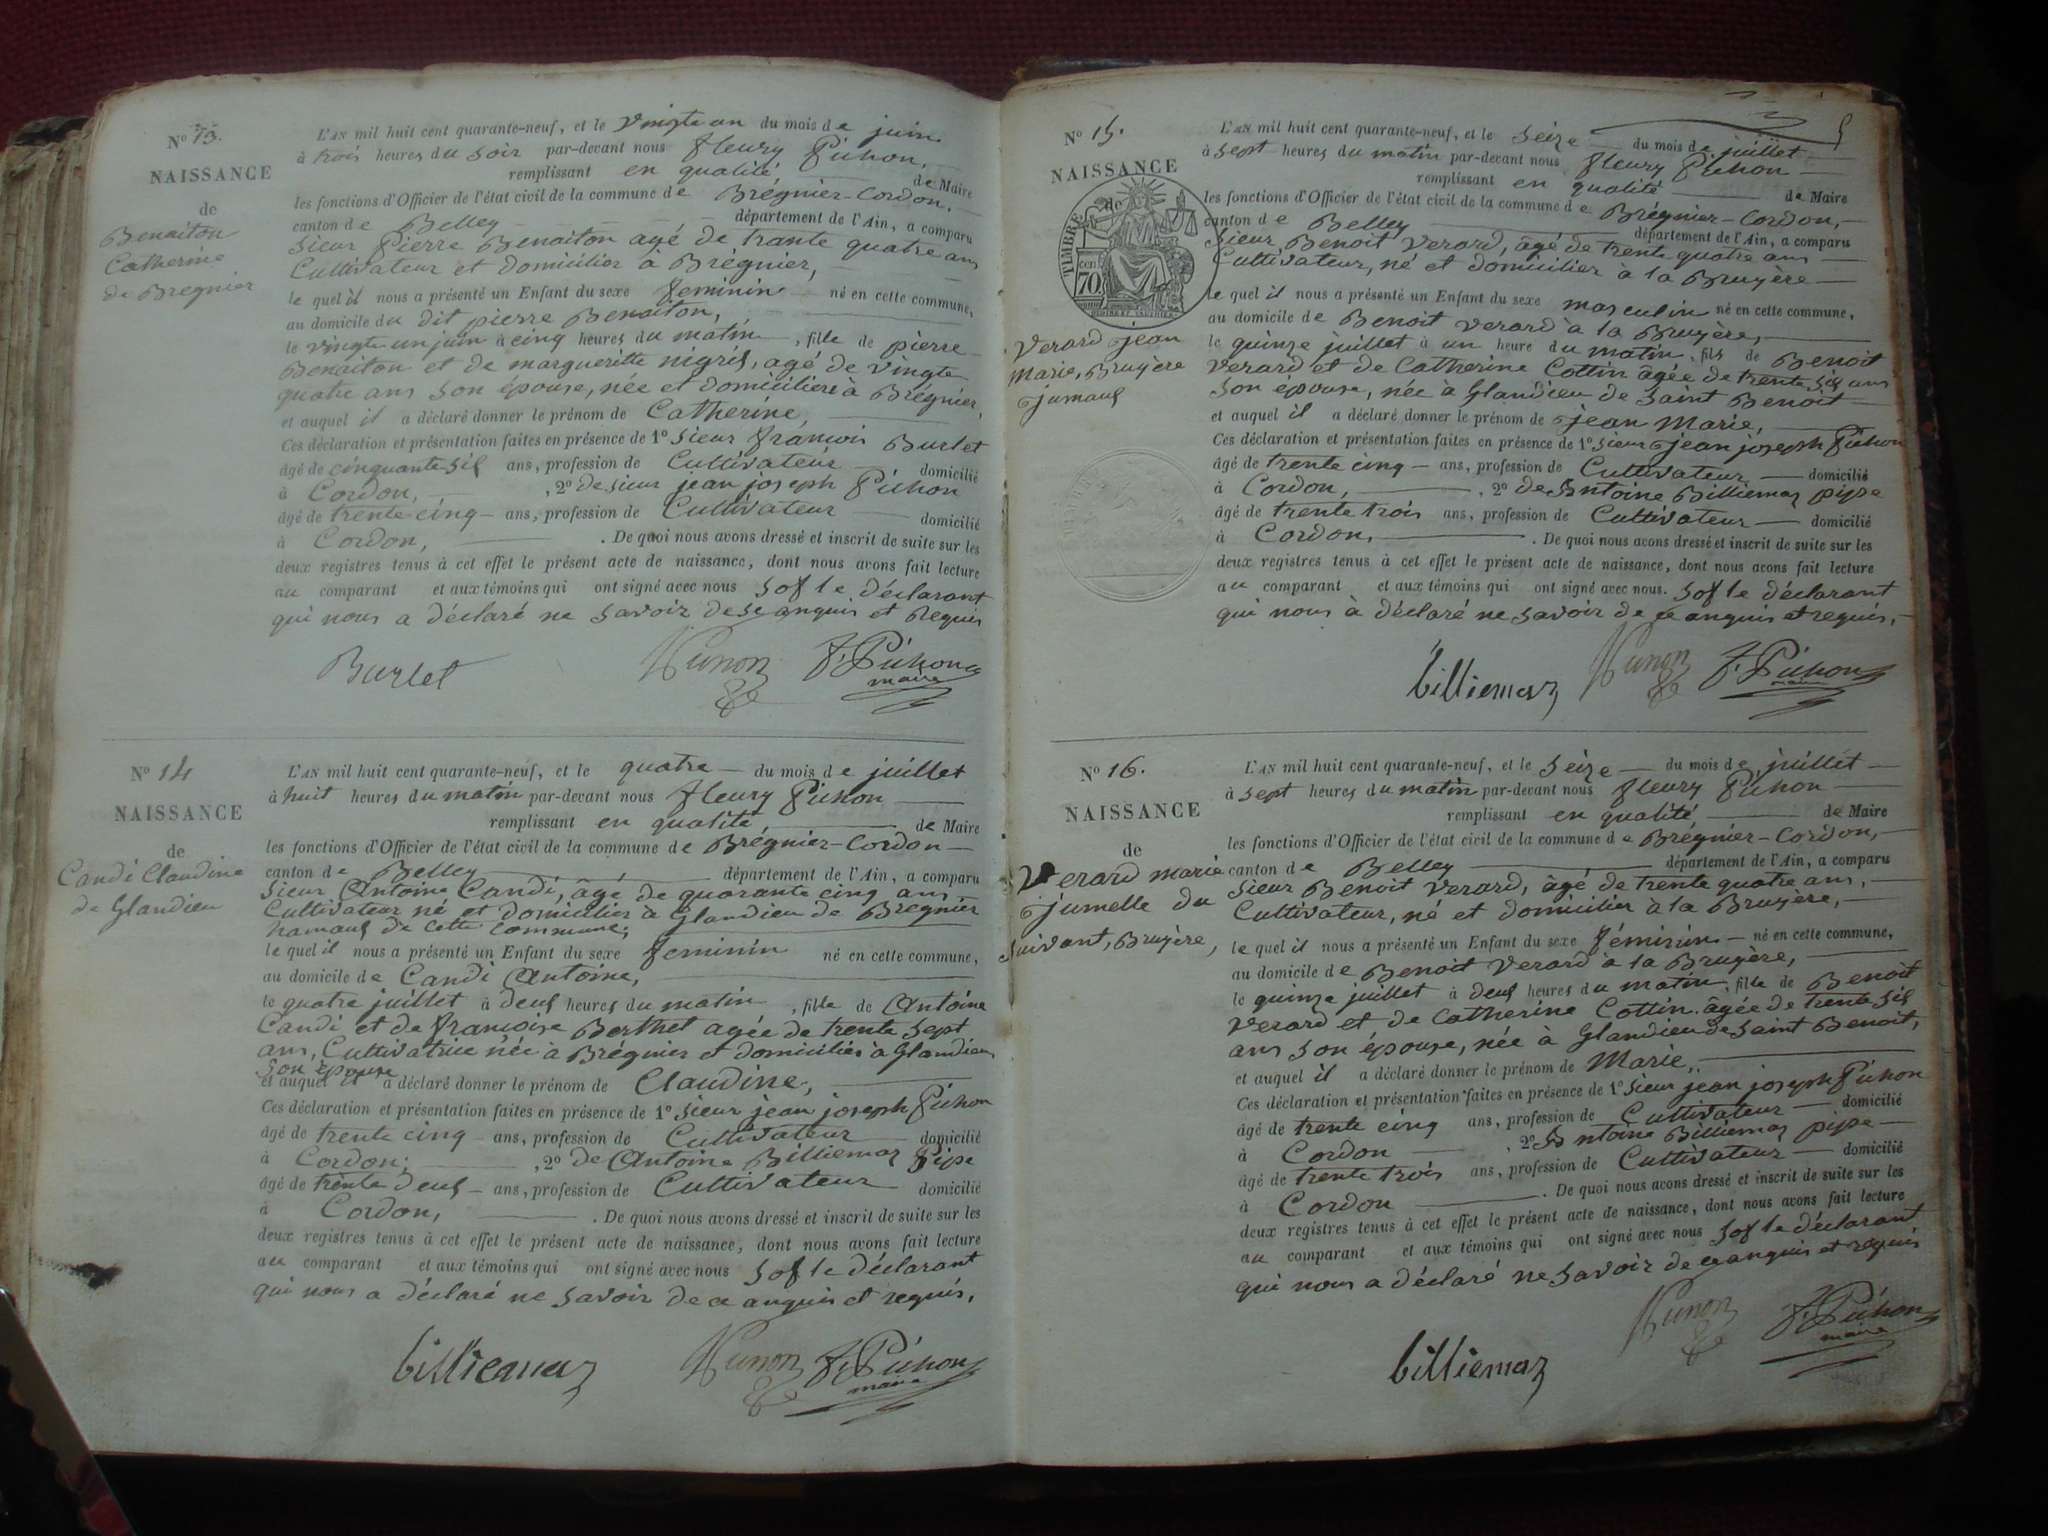 No 13.
NAISSANCE
de
Benaiton
Catherine
de Bregnier
L'AN mil huit cent quarante-neuf, et le vingte un du mois de juin
à trois heures du soir par-devant nous fleury Pichon,
remplissant en qualité de Maire
les fonctions d'Officier de l'état civil de la commune de Brégnier-Cordon.
canton de Belley département de l'Ain, a comparu
Sieur Pierre Benaiton agé de trante quatre ans
Cultivateur et domicilier à Brégnier,
le quel il nous a présenté un Enfant du sexe feminin né en cette commune,
au domicile du dit pierre Benaiton,
le vingte un juin à cinq heures du matin, fille de pierre
Benaiton et de margueritte nigris, agé de vingte
quatre ans son épouse, née et domiciliere à Brégnier,
et auquel il a déclaré donner le prénom de Catherine,
Ces déclaration et présentation faites en présence de 1º Sieur françois Burlet
âgé de cinquante six ans, profession de Cultivateur domicilié
à Cordon, , 2º de sieur jean joseph Pichon
âgé de trente cinq ans, profession de Cultivateur domicilié
à Cordon, . De quoi nous avons dressé et inscrit de suite sur les
deux registres tenus à cet effet le présent acte de naissance, dont nous avons fait lecture
au comparant et aux témoins qui ont signé avec nous sof le déclarant
qui nous a déclaré ne savoir de se anquis et requis
Burlet Pichon F. Pichon
maire
No 14
NAISSANCE
de
Candi Claudine
de Glandieu
L'AN mil huit cent quarante-neuf, et le quatre du mois de juillet
à huit heures du matin par-devant nous fleury Pichon
remplissant en qualité, de Maire
les fonctions d'Officier de l'état civil de la commune de Brégnier-Cordon
canton de Belley département de l'Ain, a comparu
Sieur Antoine Candi, âgé de quarante cinq ans
Cultivateur né et domicilier à Glandieu de Bregnier
hamaus de cette commune;
le quel il nous a présenté un Enfant du sexe feminin né en cette commune,
au domicile de Candi Antoine,
le quatre juillet à deus heures du matin, fille de Antoine
Candi et de françoise Berthet agée de trente sept
ans, Cultivatrice née à Brégnier et domiciliée à Glandieu
son épouse
et auquel il a déclaré donner le prénom de Claudine,
Ces déclaration et présentation faites en présence de 1º Sieur jean joseph Pichon
âgé de trente cinq ans, profession de Cultivateur domicilié
à Cordon; , 2º de Antoine Billiemaz Pipe
âgé de trente deus ans, profession de Cultivateur domicilié
à Cordon, . De quoi nous avons dressé et inscrit de suite sur les
deux registres tenus à cet effet le présent acte de naissance, dont nous avons fait lecture
au comparant et aux témoins qui ont signé avec nous sof le déclarant
qui nous a déclaré ne savoir de ce anquis et requis.
billiemaz Pichon F. Pichon
maire
5
No 15.
NAISSANCE
de
TIMBRE
70 cen
Verard jean
Marie, Bruyère
jumaus
L'AN mil huit cent quarante-neuf, et le Seize du mois de juillet
à sept heures du matin par-devant nous fleury Pichon
remplissant en qualité de Maire
les fonctions d'Officier de l'état civil de la commune de Brégnier-Cordon,
canton de Belley département de l'Ain, a comparu
Sieur Benoit Verard, âgé de trente quatre ans
Cultivateur, né et domicilier à la Bruyère
le quel il nous a présenté un Enfant du sexe masculin né en cette commune,
au domicile de Benoit Verard à la Bruyère,
le quinze juillet à un heure du matin, fils de Benoit
Verard et de Catherine Cottin âgée de trente sis ans
son épouse, née à Glandieu de Saint Benoit
et auquel il a déclaré donner le prénom de jean Marie,
Ces déclaration et présentation faites en présence de 1º Sieur jean joseph Pichon
âgé de trente cinq ans, profession de Cultivateur domicilié
à Cordon, , 2º de Antoine Billiemaz pipe
âgé de trente trois ans, profession de Cultivateur domicilié
à Cordon, . De quoi nous avons dressé et inscrit de suite sur les
deux registres tenus à cet effet le présent acte de naissance, dont nous avons fait lecture
au comparant et aux témoins qui ont signé avec nous. sof le déclarant
qui nous à déclaré ne savoir de ce anquis et requis,
billiemaz Pichon F. Pichon
maire
No 16.
NAISSANCE
de
Verard marie
jumelle du
suivant, Bruyère,
L'AN mil huit cent quarante-neuf, et le Seize du mois de juillet
à sept heures du matin par-devant nous fleury Pichon
remplissant en qualité de Maire
les fonctions d'Officier de l'état civil de la commune de Brégnier-Cordon,
canton de Belley département de l'Ain, a comparu
Sieur Benoit Verard, âgé de trente quatre ans,
Cultivateur, né et domicilier à la Bruyère,
le quel il nous a présenté un Enfant du sexe féminin né en cette commune,
au domicile de Benoit Verard à la Bruyère,
le quinze juillet à deus heures du matin, fille de Benoit
Verard et de Catherine Cottin, âgée de trente sis
ans son épouse, née à Glandieu de Saint Benoit,
et auquel il a déclaré donner le prénom de Marie,
Ces déclaration et présentation faites en présence de 1º Sieur jean joseph Pichon
âgé de trente cinq ans, profession de Cultivateur domicilié
à Cordon , 2º Antoine Billiemaz pipe
âgé de trente trois ans, profession de Cultivateur domicilié
à Cordon . De quoi nous avons dressé et inscrit de suite sur les
deux registres tenus à cet effet le présent acte de naissance, dont nous avons fait lecture
au comparant et aux témoins qui ont signé avec nous sof le déclarant
qui nous a déclaré ne savoir de ce anquis et requis
billiemaz Pichon F. Pichon
maire